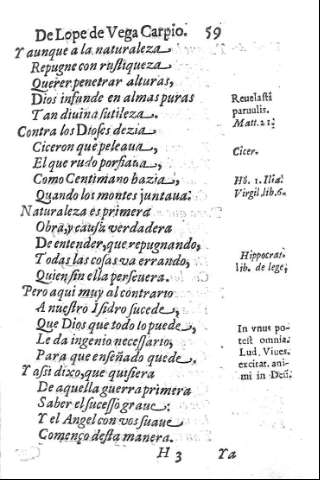 De Lope de Vega Carpio. 59
Y aunque a la naturaleza
Repugne con rustiqueza
Querer penetrar alturas,
Dios infunde en almas puras
Tan diuina sutileza.
Contra los Dioses dezia
Ciceron que peleaua,
El que rudo porfiaua,
Como Centimano hazia,
Quando los montes juntaua.
Naturaleza es primera
Obra, y causa verdadera
De entender, que repugnando,
Todas las cosas va errando,
Quien sin ella perseuera.
Pero aqui muy al contrario
A nuestro Isidro sucede,
Que Dios que todo lo puede,
Le da ingenio necessario,
Para que enseñado quede.
Y assi dixo, que quisiera
De aquella guerra primera
Saber el sucesso graue:
Y el Angel con vos suaue
Començo desta manera.
H 3 Ya
Reuelasti
paruulis.
Matt. 21.
Cicer.
Hó. 1. Ilia.
Virgil. lib. 6.
Hippocrat.
lib. de lege,
In vnus po-
test omnia.
Lud. Viues.
excitat. ani-
mi in Deũ.